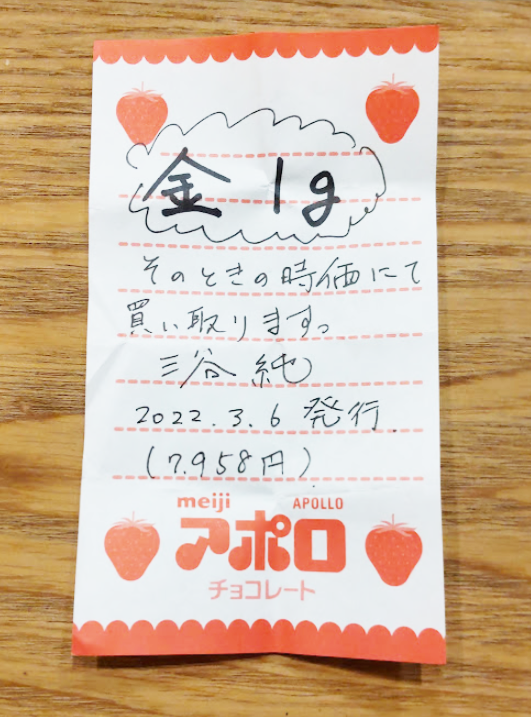 金 1g
そのときの時価にて
買い取ります。
三谷 純
2022.3.6 発行
(7.958円)
meiji APOLLO
アポロ
チョコレート